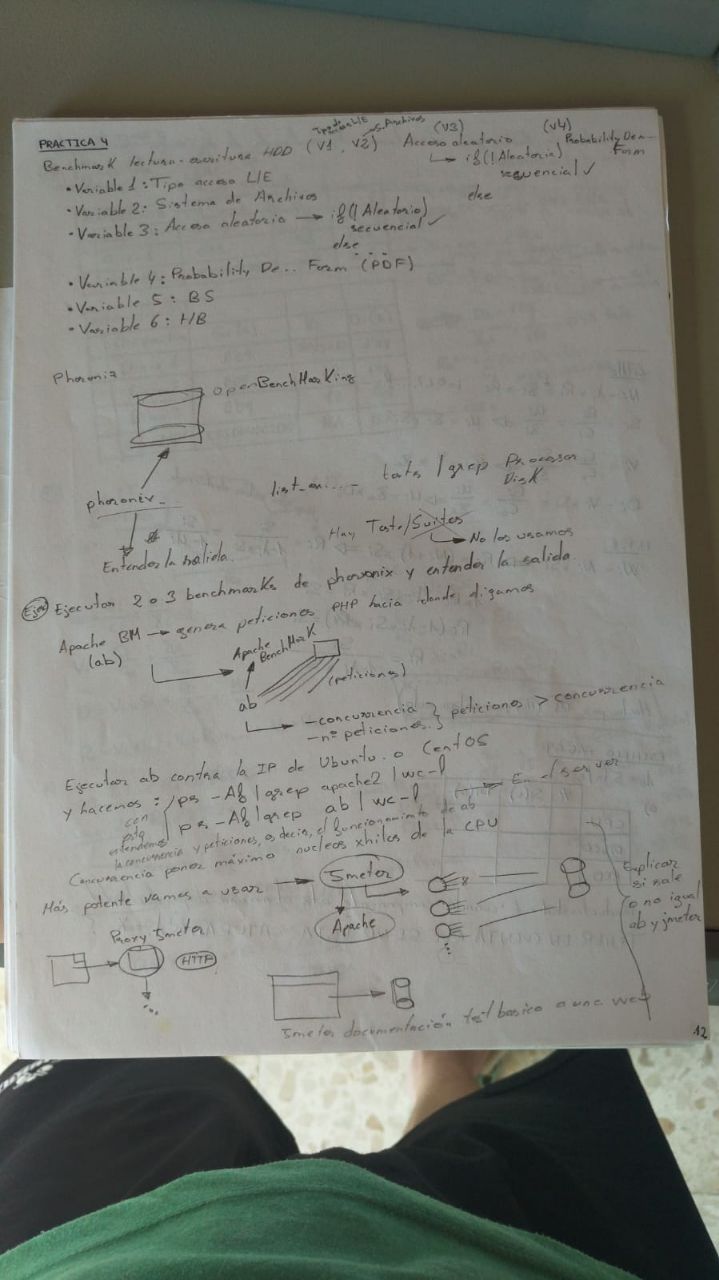 PRACTICA 4
Benchmark lectura-escritura HDD (V1, V2) Acceso aleatorio Probability De... Form
S. Archivos (V3) (V4)
if(!Aleatorio)
sequencial ✓
else
• Variable 1: Tipo acceso L/E
• Variable 2: Sistema de Archivos
• Variable 3: Acceso aleatorio → if(!Aleatorio)
secuencial ✓
else
...
• Variable 4: Probability De.. Form (PDF)
• Variable 5: BS
• Variable 6: HB
Phoronix
OpenBenchMarKing
phoronix_
list_ tests | grep Processor
Disk
Hay Tests/Suites
→ No los usamos
Entender la salida
Ejer Ejecutar 2 o 3 benchmarks de phoronix y entender la salida
Apache BM → genera peticiones PHP hacia donde digamos
(ab)
Apache
BenchMark
(peticiones)
ab
-concurrencia } peticiones > concurrencia
-nº peticiones }
Ejecutar ab contra la IP de Ubuntu o CentOS
y hacemos: ps -Af | grep apache2 | wc -l → En el server
ps -Af | grep ab | wc -l
con
esto
entendemos
la concurrencia y peticiones, es decir, el funcionamiento de ab
Concurrencia poner máximo nucleos xhilos de la CPU
Más potente vamos a usar → Jmeter
Apache
Explicar
si sale
o no igual
ab y jmeter
Proxy Jmeter
HTTP
...
Jmeter documentación test basico a una web
12